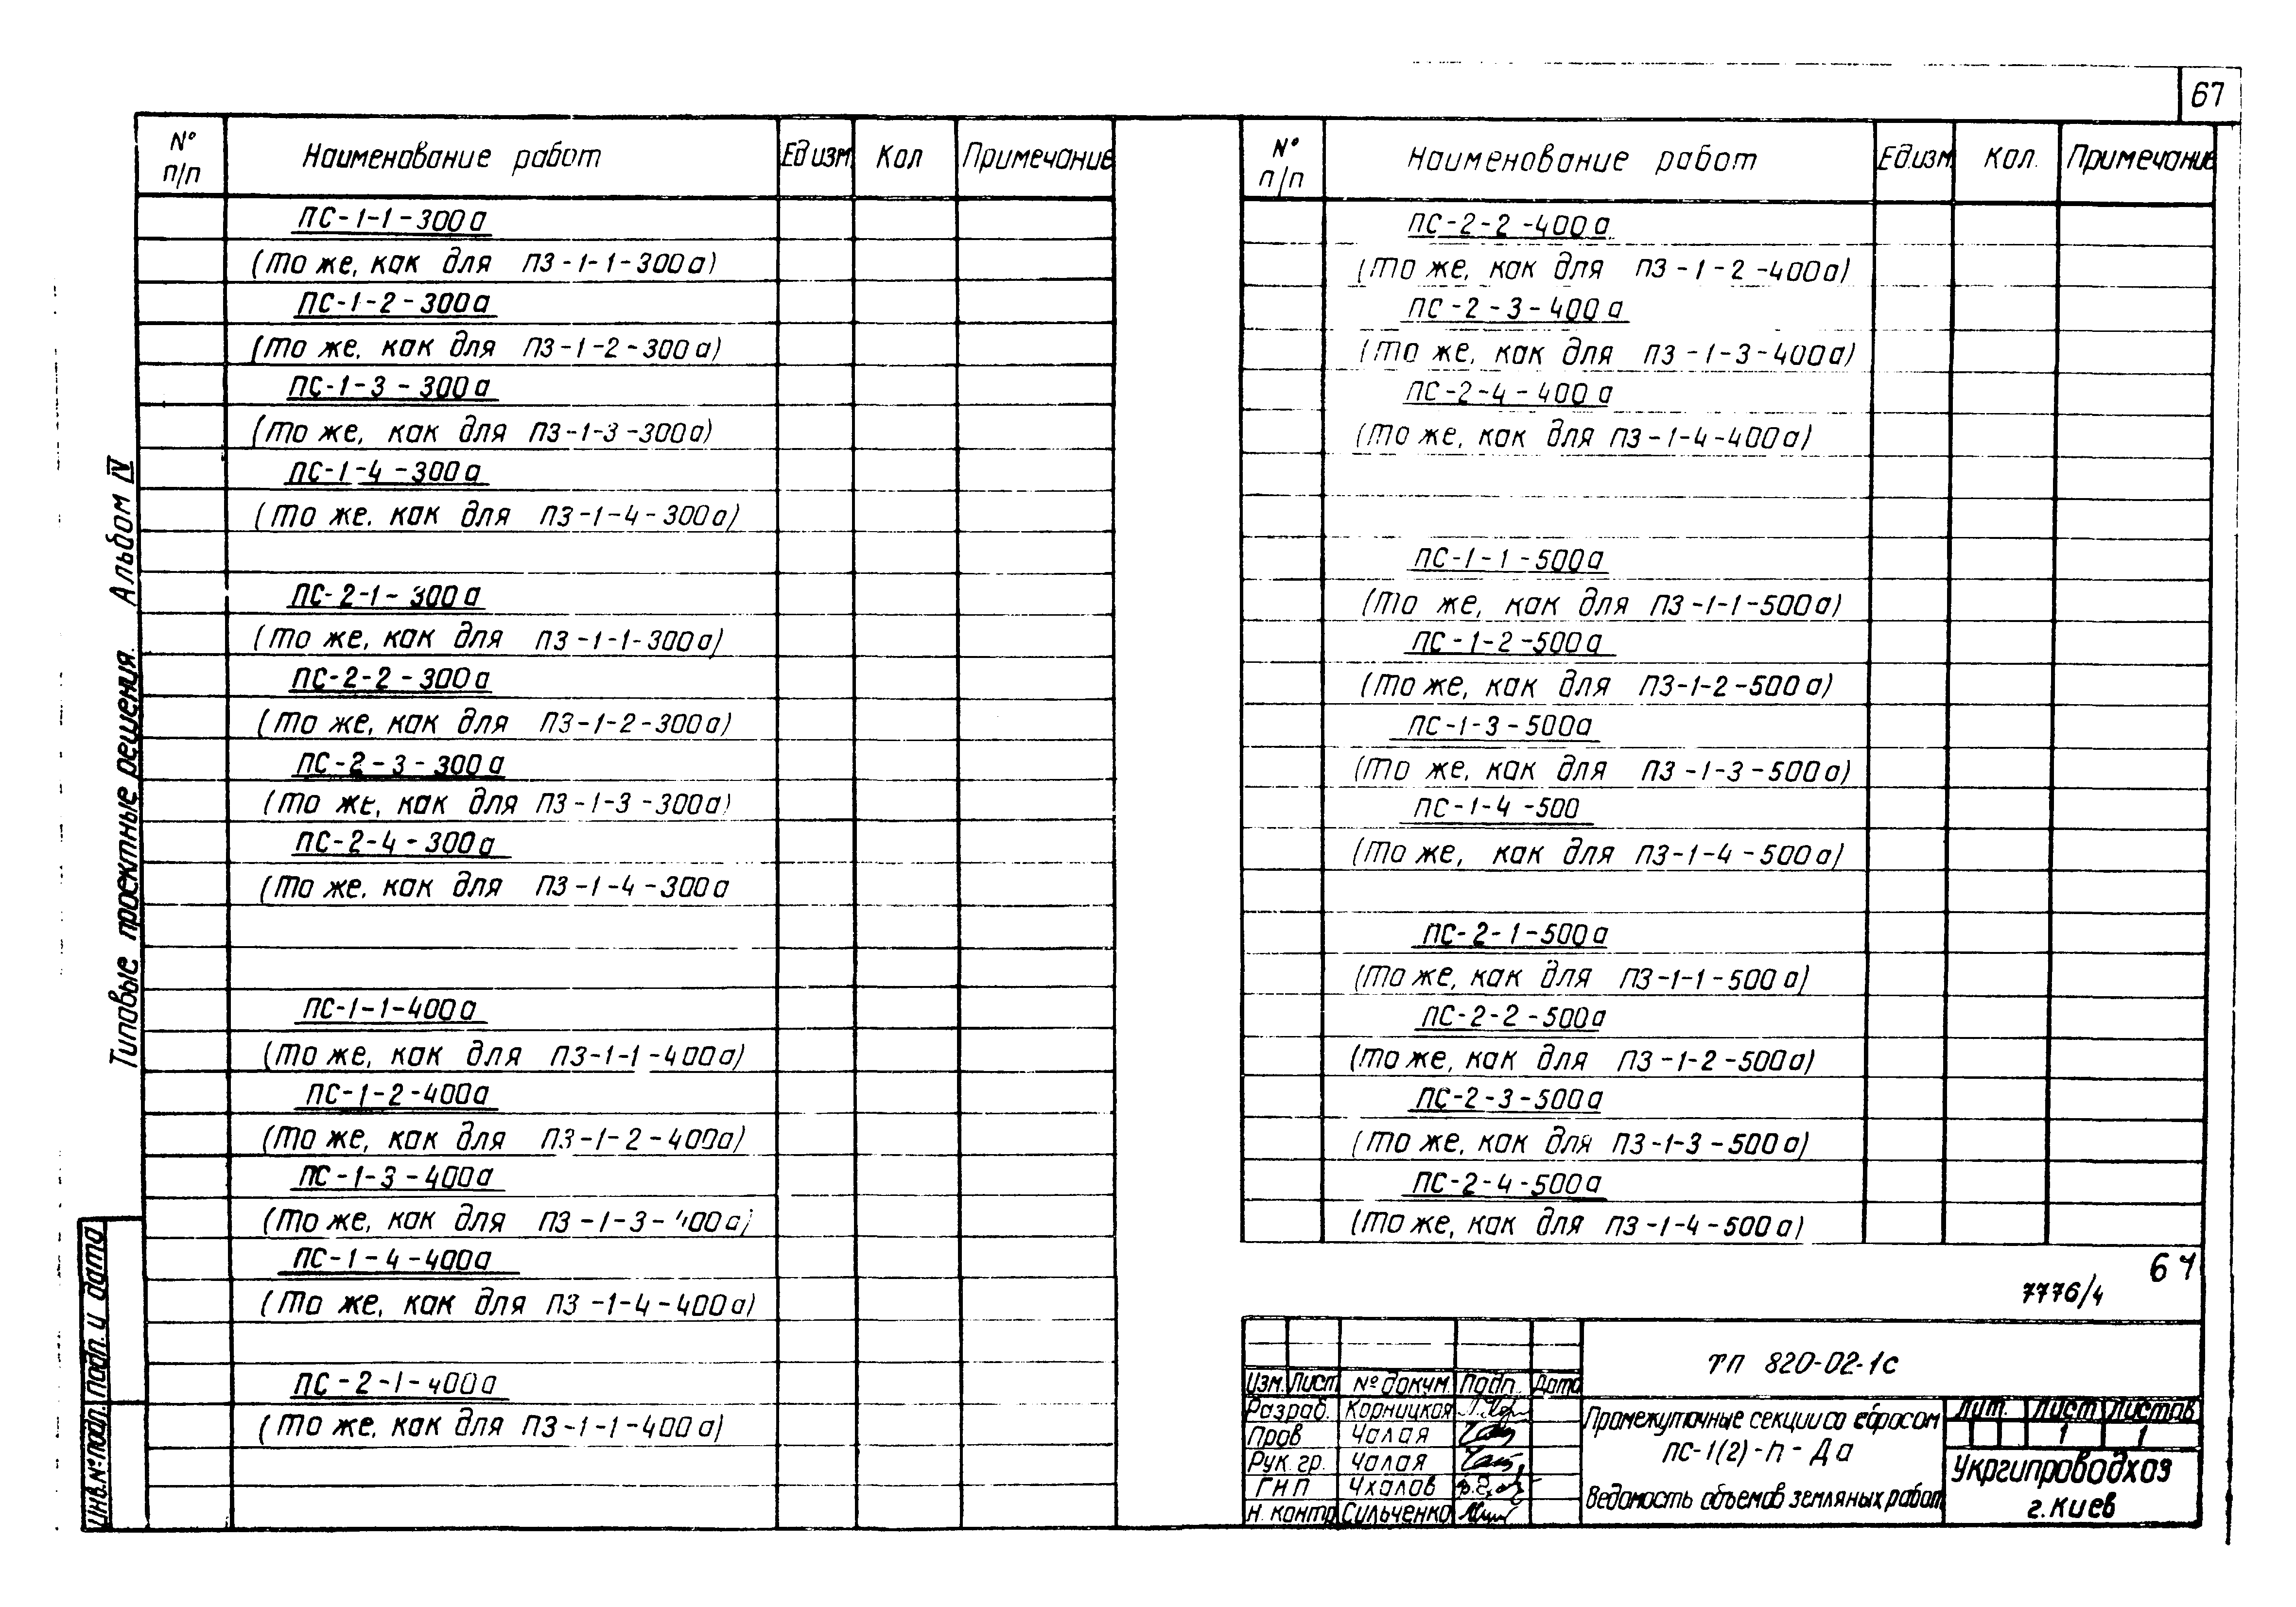 67
Типовые проектные решения. Альбом IV
Инв.№подл. Подп. и дата
№ п/п Наименование работ Ед изм Кол Примечание
ПС-1-1-300а
(то же, как для ПЗ-1-1-300а)
ПС-1-2-300а
(то же, как для ПЗ-1-2-300а)
ПС-1-3-300а
(то же, как для ПЗ-1-3-300а)
ПС-1-4-300а
(то же, как для ПЗ-1-4-300а)
ПС-2-1-300а
(то же, как для ПЗ-1-1-300а)
ПС-2-2-300а
(то же, как для ПЗ-1-2-300а)
ПС-2-3-300а
(то же, как для ПЗ-1-3-300а)
ПС-2-4-300а
(то же, как для ПЗ-1-4-300а
ПС-1-1-400а
(то же, как для ПЗ-1-1-400а)
ПС-1-2-400а
(то же, как для ПЗ-1-2-400а)
ПС-1-3-400а
(то же, как для ПЗ-1-3-400а)
ПС-1-4-400а
(то же, как для ПЗ-1-4-400а)
ПС-2-1-400а
(то же, как для ПЗ-1-1-400а)
№ п/п Наименование работ Ед.изм. Кол. Примечание
ПС-2-2-400а
(то же, как для ПЗ-1-2-400а)
ПС-2-3-400а
(то же, как для ПЗ-1-3-400а)
ПС-2-4-400а
(то же, как для ПЗ-1-4-400а)
ПС-1-1-500а
(то же, как для ПЗ-1-1-500а)
ПС-1-2-500а
(то же, как для ПЗ-1-2-500а)
ПС-1-3-500а
(то же, как для ПЗ-1-3-500а)
ПС-1-4-500
(то же, как для ПЗ-1-4-500а)
ПС-2-1-500а
(то же, как для ПЗ-1-1-500а)
ПС-2-2-500а
(то же, как для ПЗ-1-2-500а)
ПС-2-3-500а
(то же, как для ПЗ-1-3-500а)
ПС-2-4-500а
(то же, как для ПЗ-1-4-500а)
67
7776/4
Изм. Лист № докум. Подп. Дата
Разраб. Корницкая
Пров Чалая
Рук. гр. Чалая
ГНП Чхалов
Н. контр Сильченко
ТП 820-02-1с
Промежуточные секции со сбросом
ПС-1(2)-п-Да
Ведомость объемов земляных работ
Лит. Лист Листов
1 1
Укргипроводхоз
г. Киев